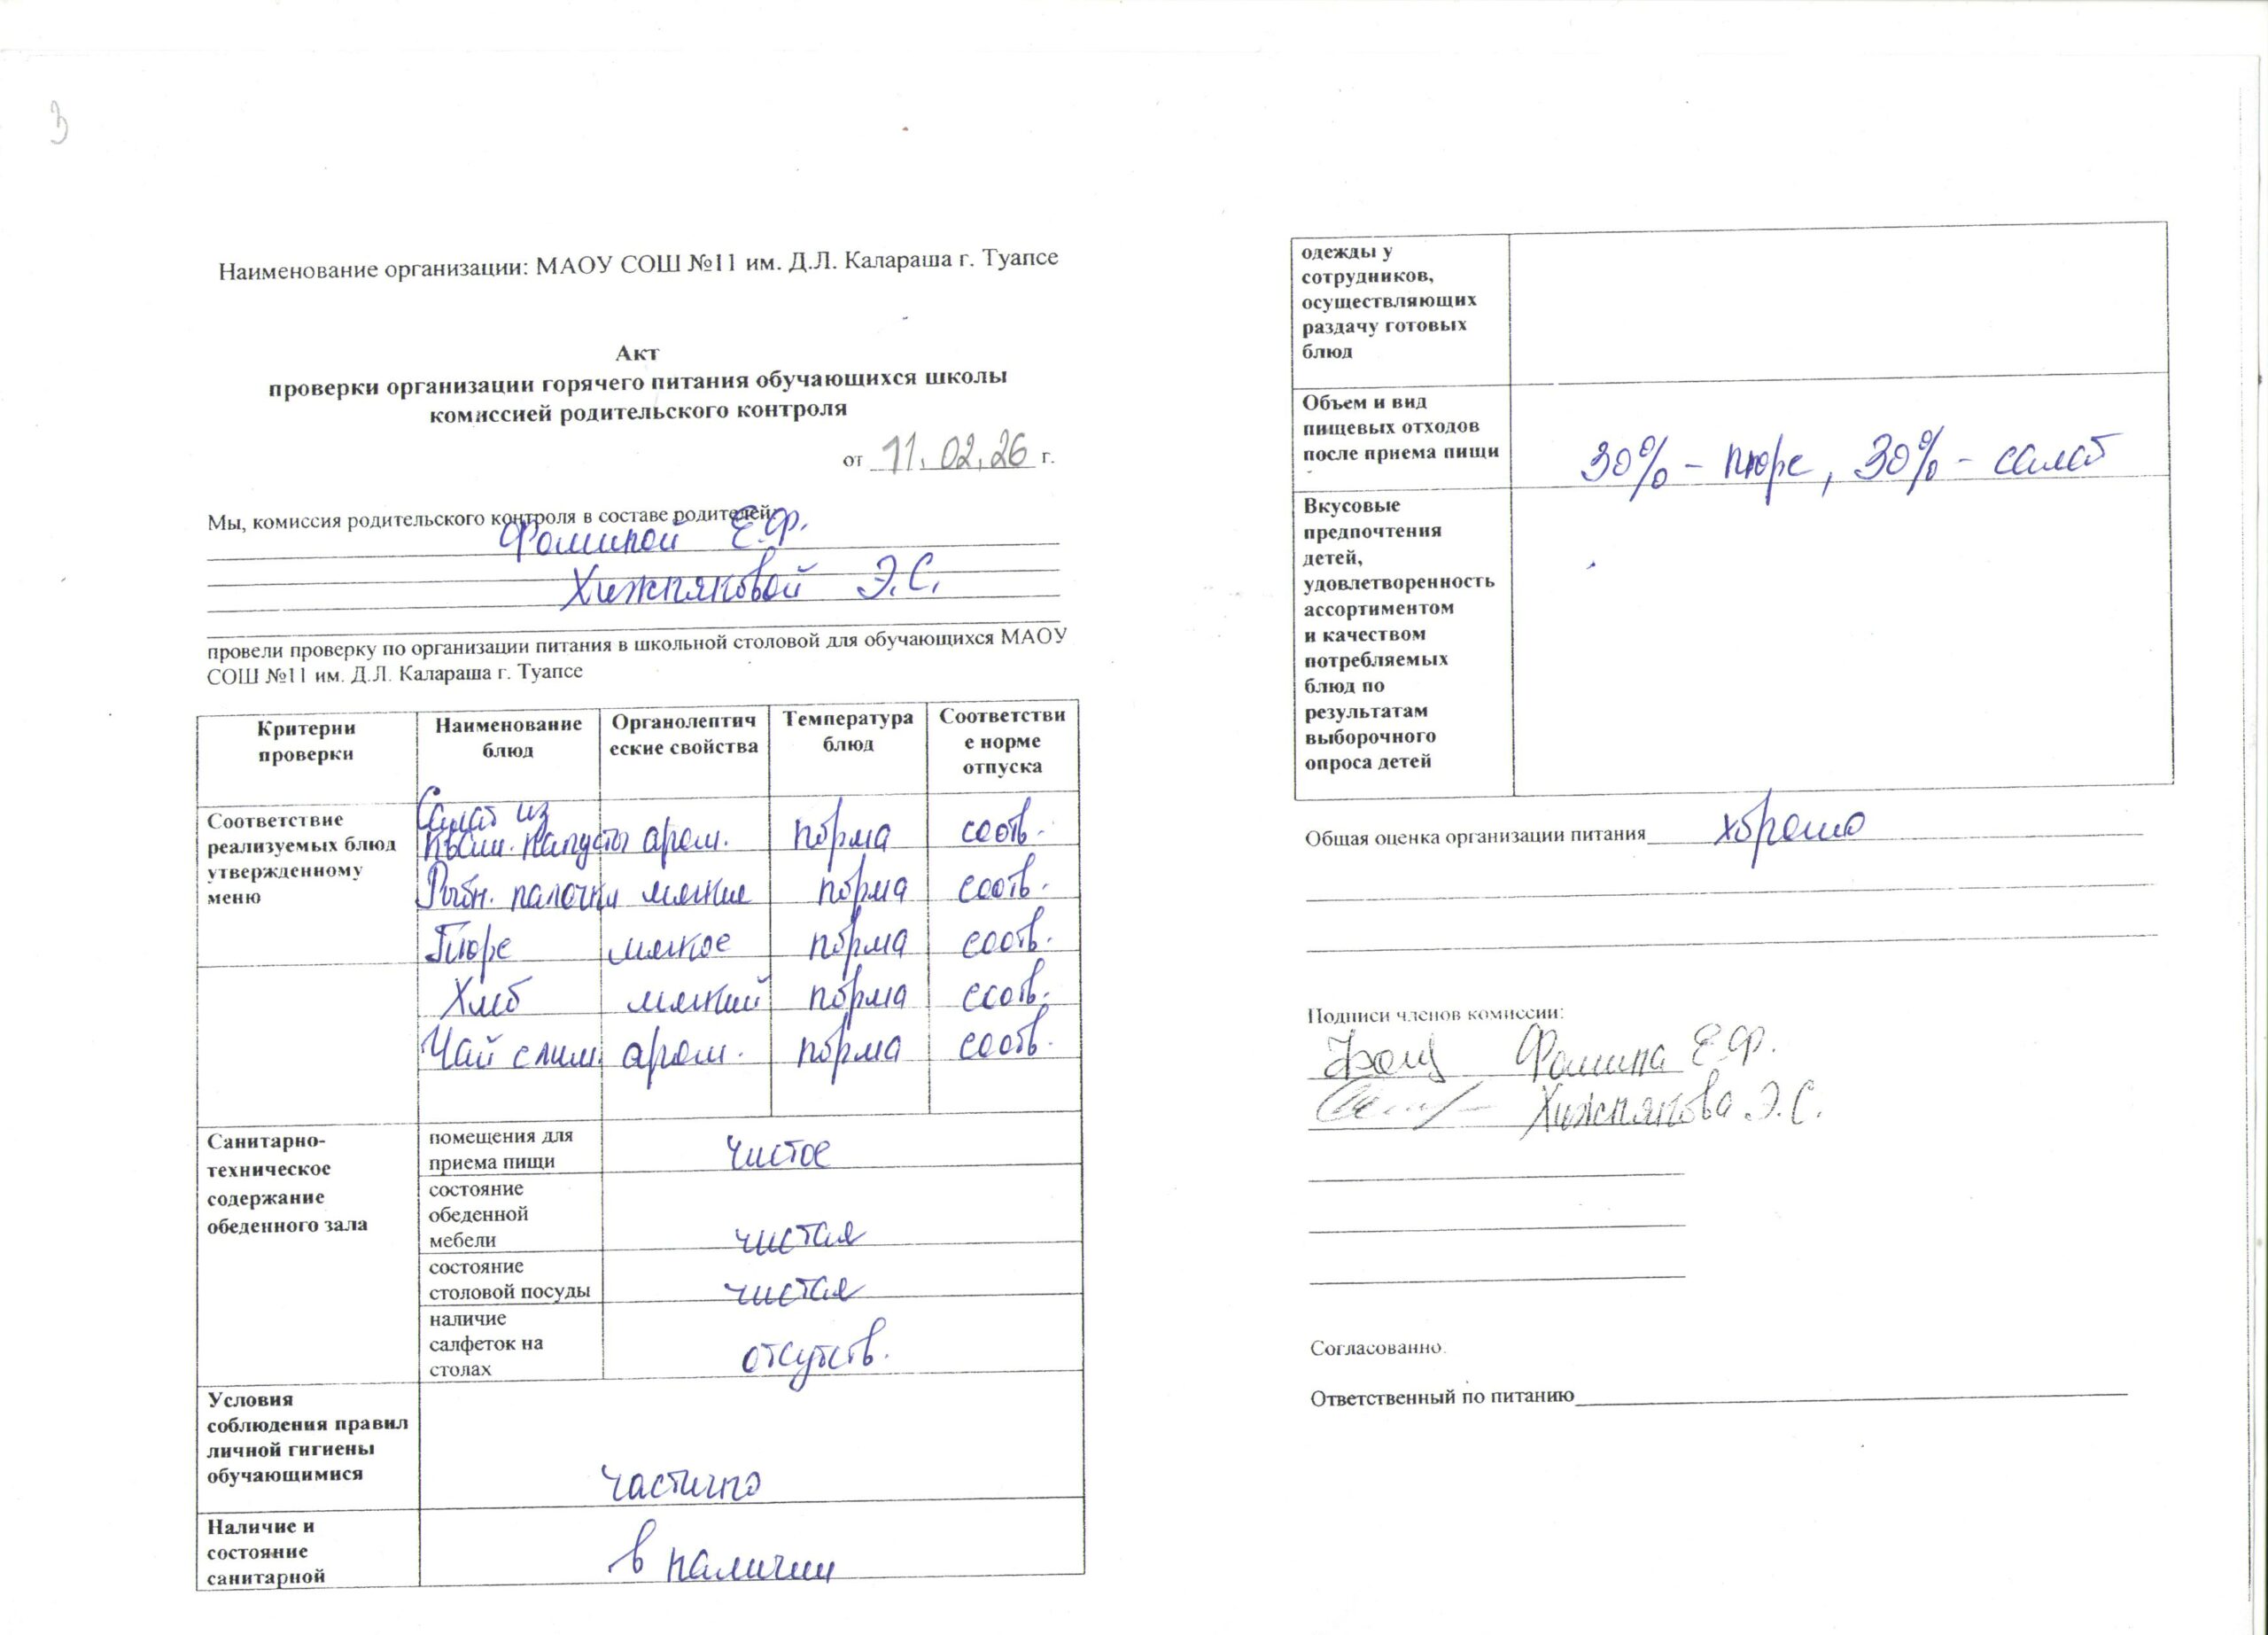 3
Наименование организации: МАОУ СОШ №11 им. Д.Л. Калараша г. Туапсе
Акт
проверки организации горячего питания обучающихся школы
комиссией родительского контроля
от 11.02.26 г.
Мы, комиссия родительского контроля в составе родителей:
Фоминой Е.Ф.
Хижняковой Э.С.
провели проверку по организации питания в школьной столовой для обучающихся МАОУ
СОШ №11 им. Д.Л. Калараша г. Туапсе
Критерии проверки | Наименование блюд | Органолептические свойства | Температура блюд | Соответствие норме отпуска
Соответствие реализуемых блюд утвержденному меню
Салат из
квош. капусты аром. норма соотв.
Рыбн. палочки мягкие норма соотв.
Пюре мягкое норма соотв.
Хлеб мягкий норма соотв.
Чай с лим. аром. норма соотв.
Санитарно-техническое содержание обеденного зала
помещения для приема пищи чистое
состояние обеденной мебели чистая
состояние столовой посуды чистая
наличие салфеток на столах отсутств.
Условия соблюдения правил личной гигиены обучающимися частично
Наличие и состояние санитарной в наличии
одежды у
сотрудников,
осуществляющих
раздачу готовых
блюд
Объем и вид
пищевых отходов
после приема пищи 30% - пюре, 30% - салат
Вкусовые
предпочтения
детей,
удовлетворенность
ассортиментом
и качеством
потребляемых
блюд по
результатам
выборочного
опроса детей
Общая оценка организации питания хорошо
Подписи членов комиссии:
Фомина Е.Ф.
Хижнякова Э.С.
Согласованно.
Ответственный по питанию